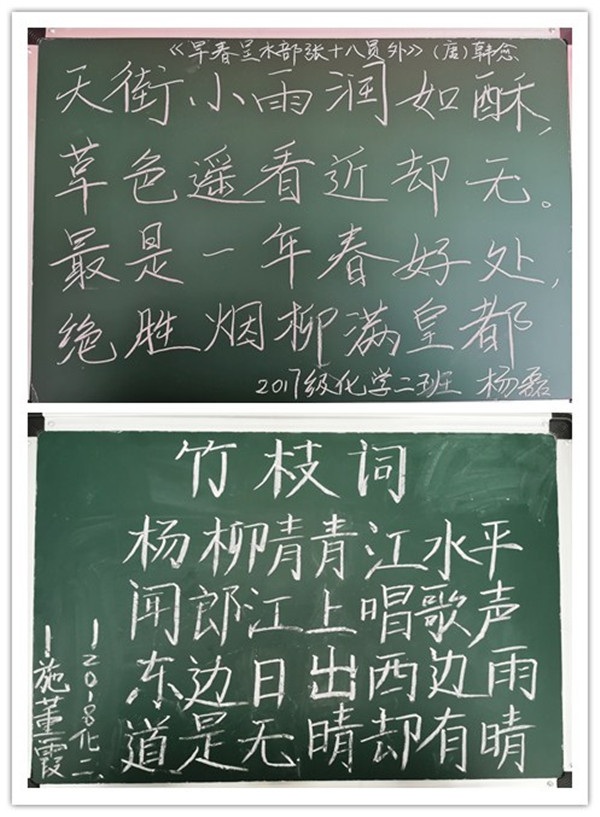 《早春呈水部张十八员外》(唐)韩念
天街小雨润如酥,
草色遥看近却无。
最是一年春好处,
绝胜烟柳满皇都
2017级化学二班 杨磊
竹枝词
杨柳青青江水平
闻郎江上唱歌声
东边日出西边雨
道是无晴却有晴
—2018化二、
—施董霞